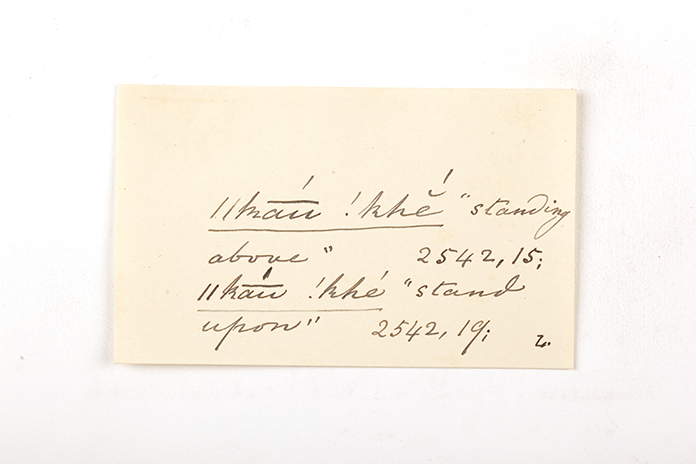 ǁkāń !khĕ́ "standing
above" 2542, 15;
ǁkāń !khé "stand
upon" 2542, 19; L.